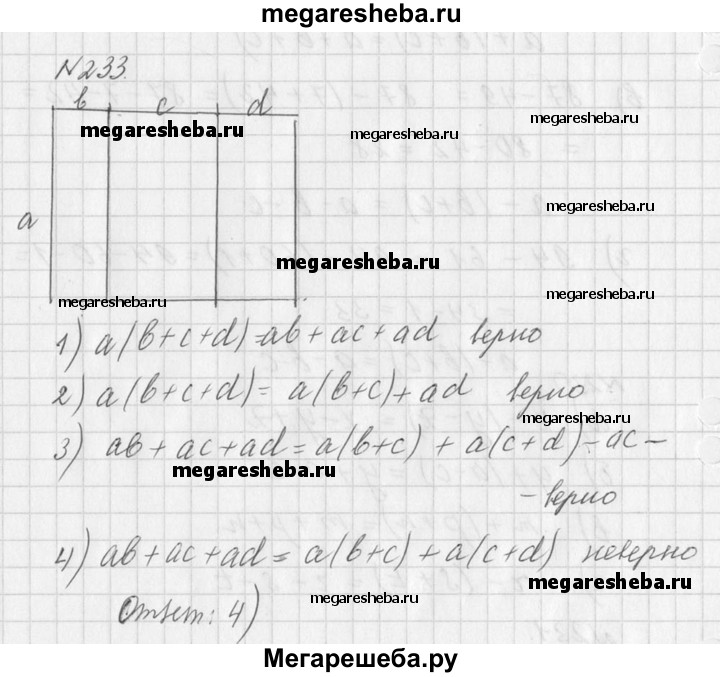 megaresheba.ru
N233.
b c d
megaresheba.ru
megaresheba.ru
megaresheba.ru
a
megaresheba.ru
megaresheba.ru
megaresheba.ru
1) a(b+c+d)=ab+ac+ad верно
2) a(b+c+d)= a(b+c)+ad верно
megaresheba.ru
3) ab+ac+ad=a(b+c) + a(c+d)-ac-
megaresheba.ru
- верно
4) ab+ac+ad= a(b+c)+a(c+d) неверно
megaresheba.ru
megaresheba.ru
Ответ: 4)
Мегарешеба.ру